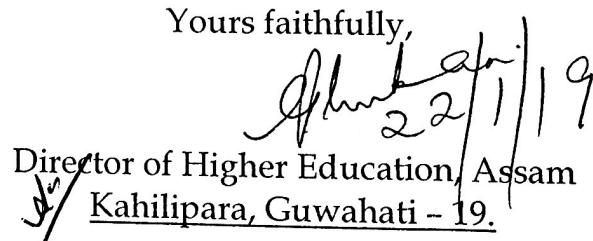 Yours faithfully,
22/1/19
Director of Higher Education, Assam
Kahilipara, Guwahati – 19.